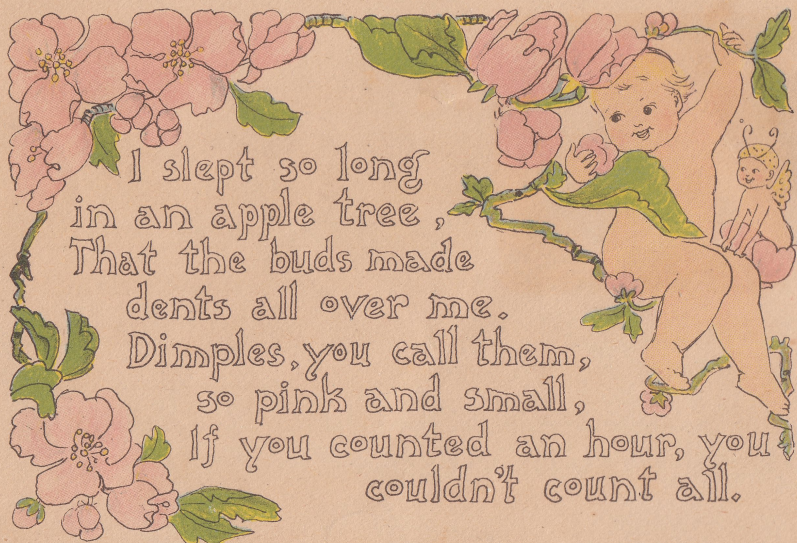 I slept so long
in an apple tree,
That the buds made
dents all over me.
Dimples, you call them,
so pink and small,
If you counted an hour, you
couldn't count all.